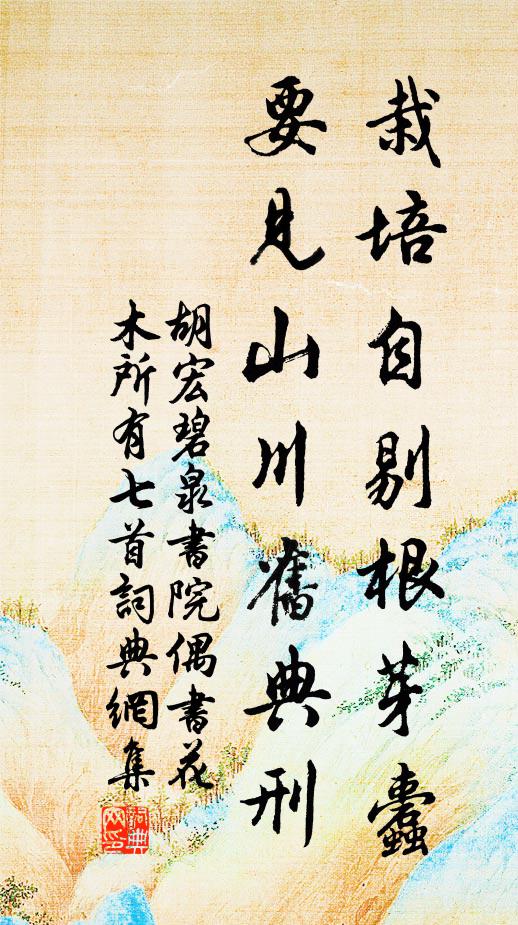 栽培自剔根芽蠹
要見山川舊典刑
胡宏碧泉書院偶書花
木所有七首詞典網集
詞典
网印